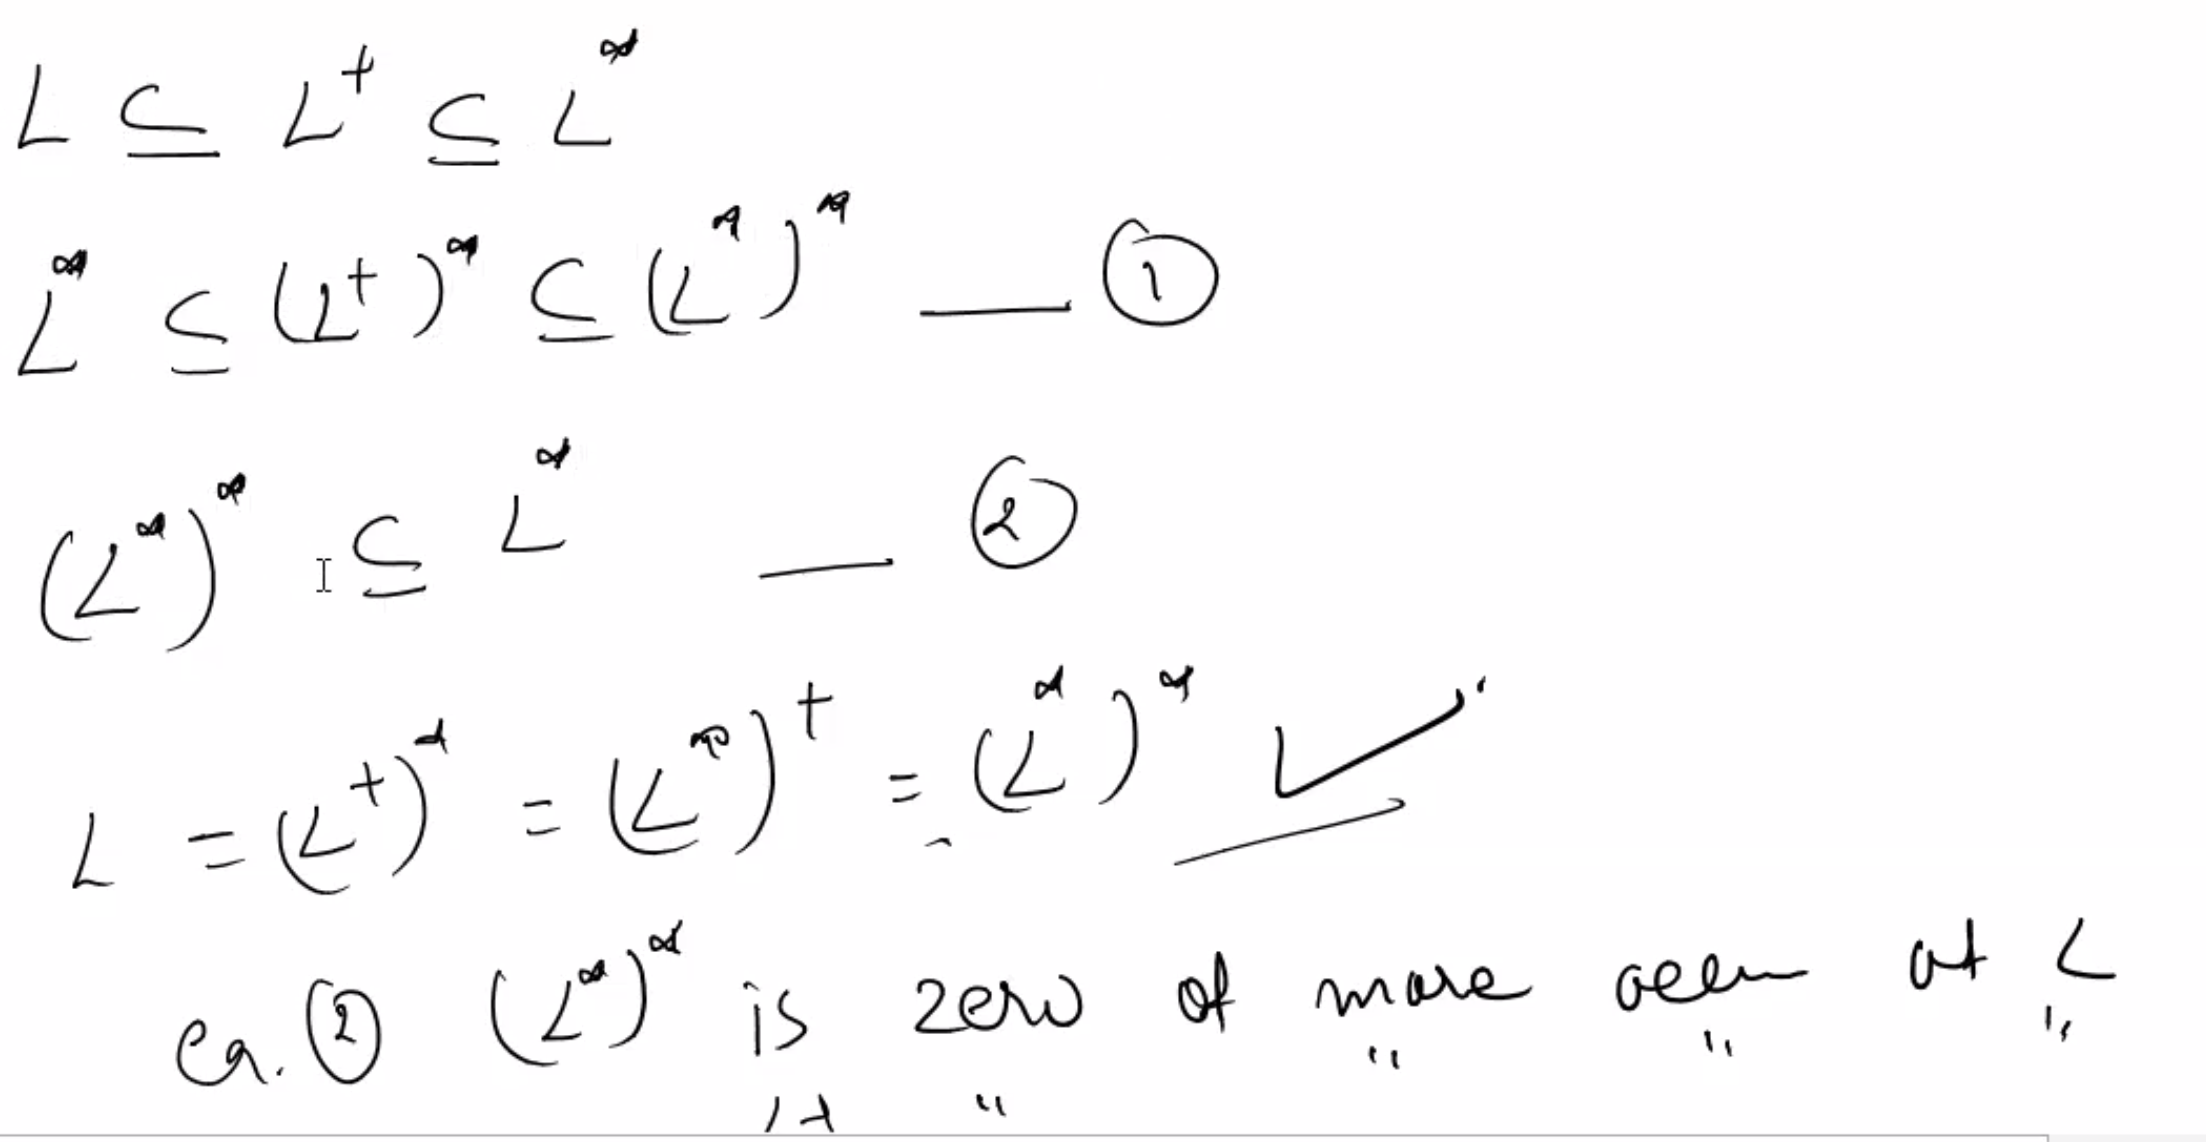 L ⊆ L⁺ ⊆ L*
L* ⊆ (L⁺)* ⊆ (L*)* — ①
(L*)* ⊆ L* — ②
L = (L⁺)* = (L*)⁺ = (L*)* ✓
eq. ② (L*)* is zero of more at L
" " "
" "